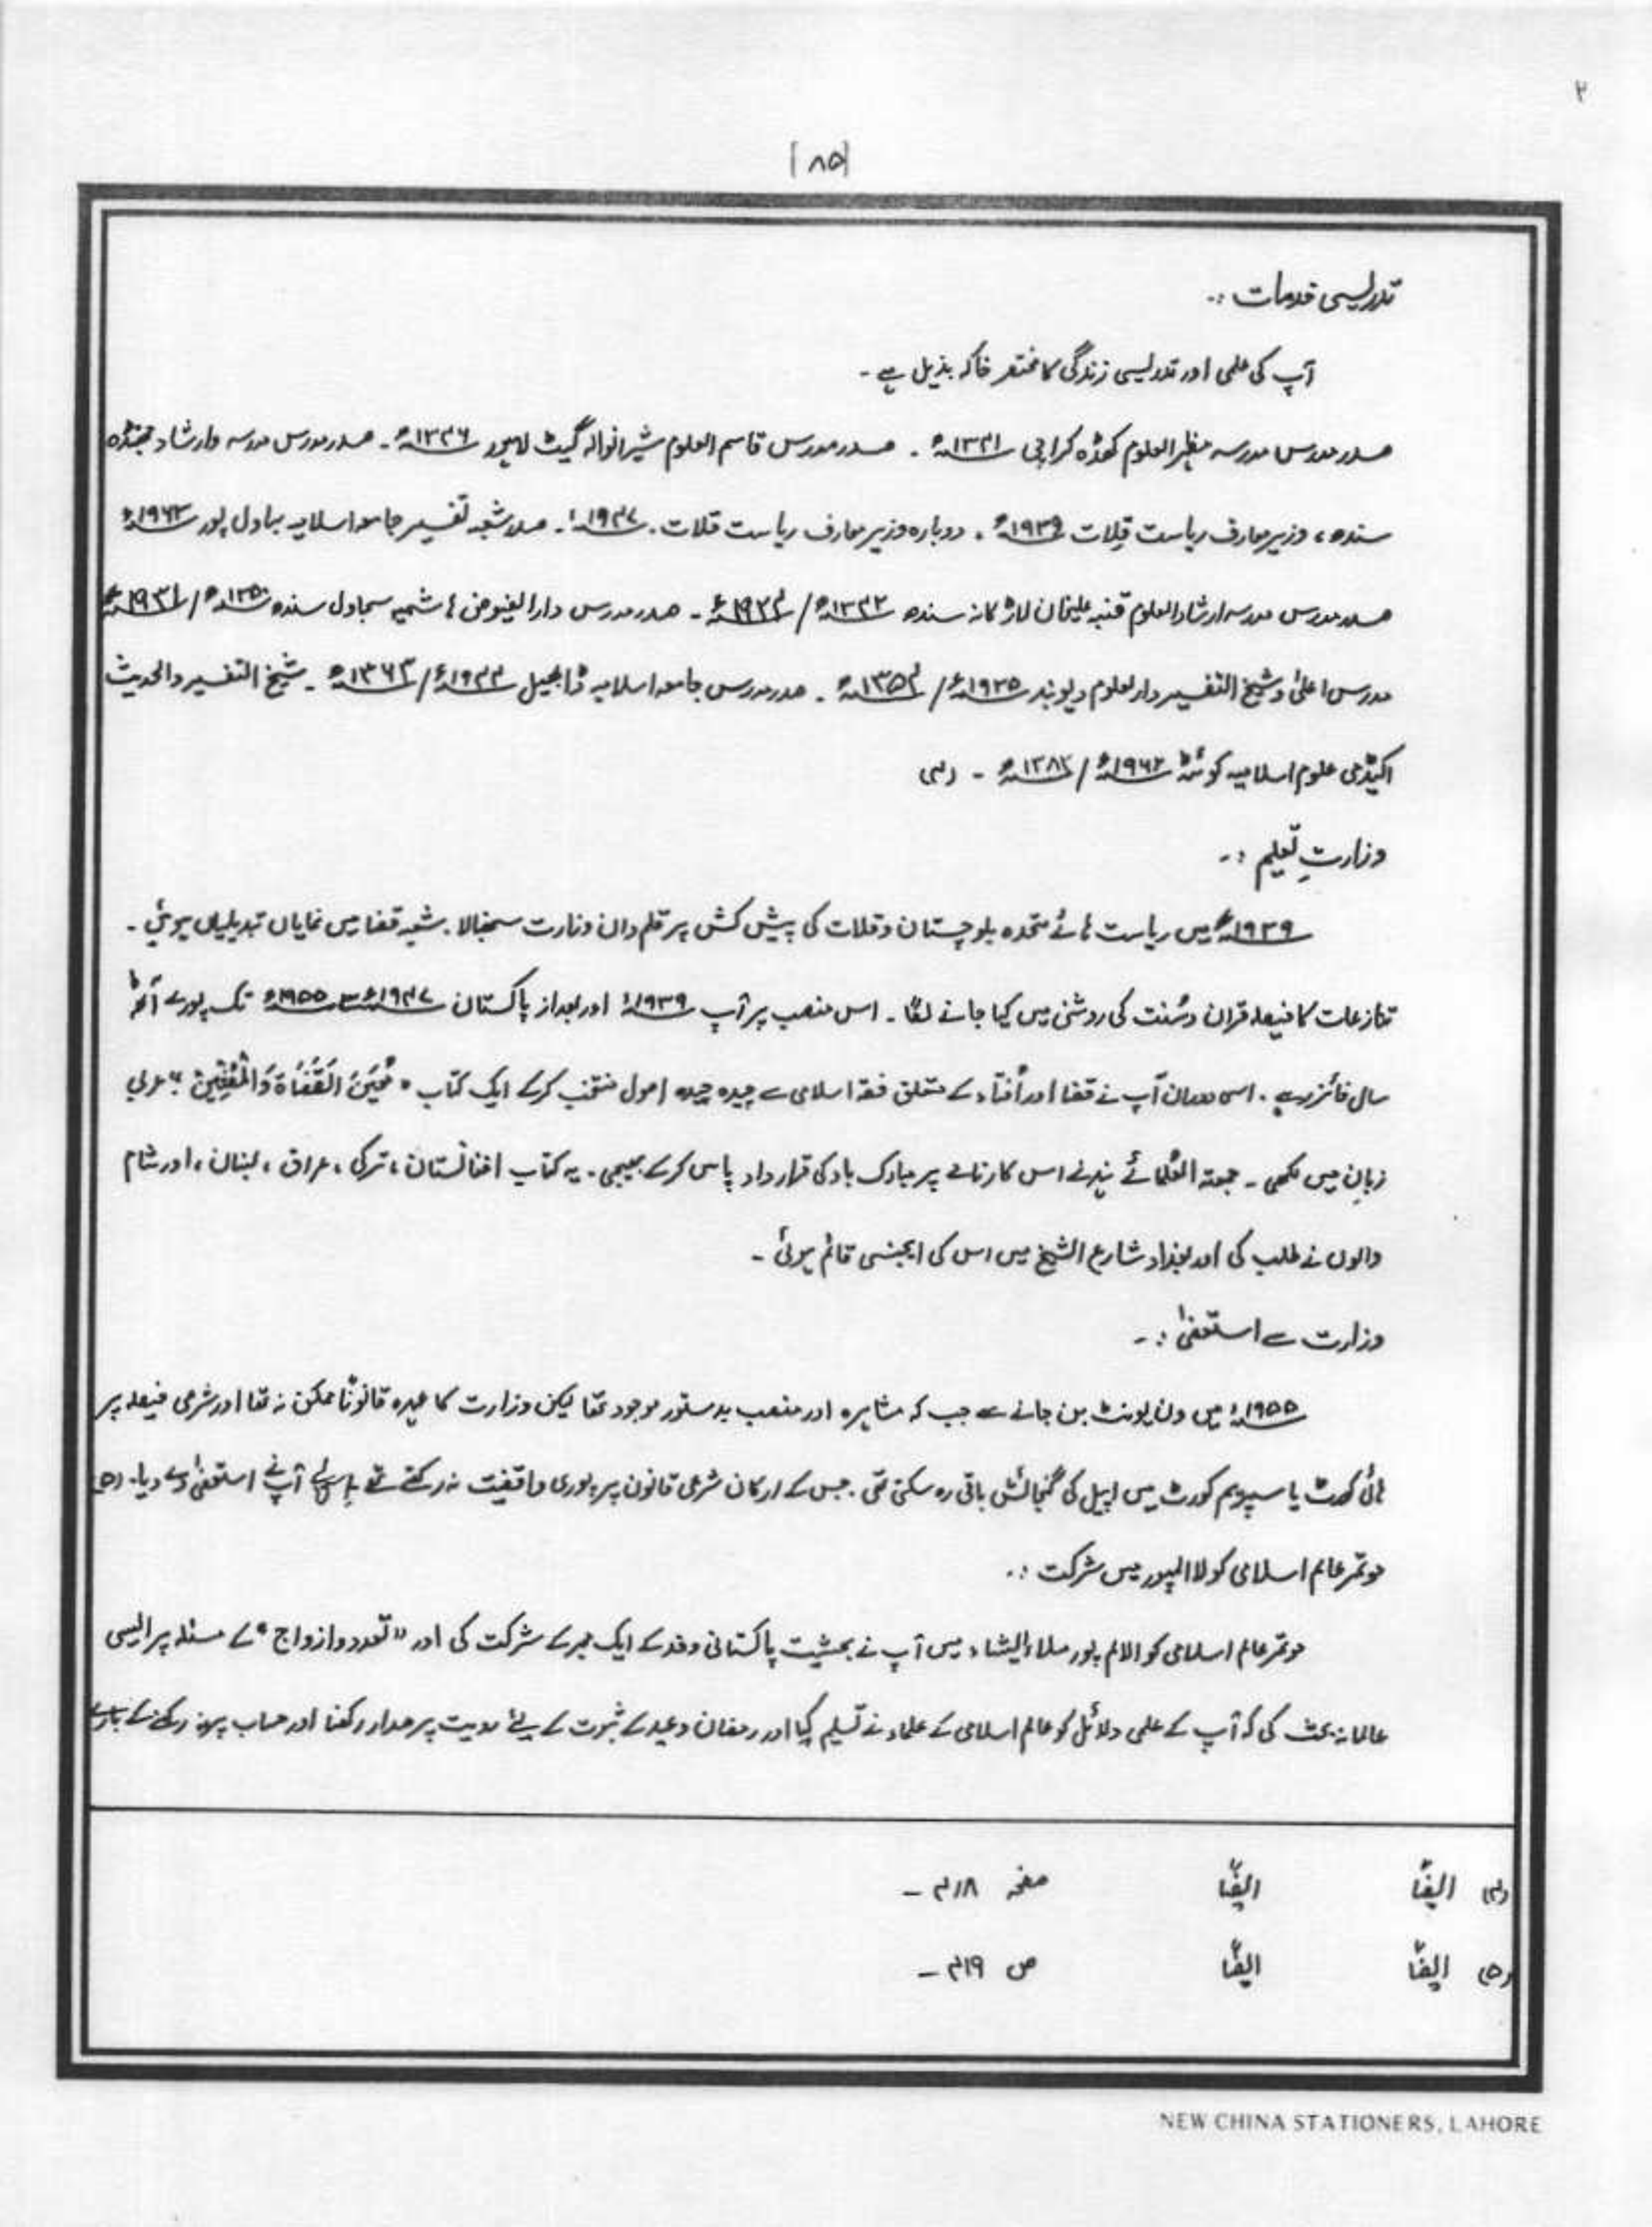 ۲
[۸۵]
تدریسی خدمات :۔
آپ کی علمی اور تدریسی زندگی کا مختصر خاکہ بذیل ہے ۔
صدر مدرس مدرسہ مظہر العلوم کھڈہ کراچی ۱۳۴۱ھ ۔ صدر مدرس قاسم العلوم شیرانوالہ گیٹ لاہور ۱۳۴۶ھ ۔ صدر مدرس مدرسہ دارشاد جھنڈہ
سندھ ، وزیر معارف ریاست قلات ۱۹۳۹ء ۔ دوبارہ وزیر معارف ریاست قلات ۔ ۱۹۴۷ء ۔ صدر شعبہ تفسیر جامعہ اسلامیہ بہاول پور ۱۹۶۳ء
صدر مدرس مدرسہ ارشاد العلوم قنبر علیخان لاڑکانہ سندھ ھ / ء ۔ صدر مدرس دارالفیوض ہاشمیہ سجاول سندھ ۱۳۵۰ھ / ۱۹۳۱ء
مدرس اعلیٰ و شیخ التفسیر دارلعلوم دیوبند ۱۹۳۵ء / ۱۳۵۴ھ ۔ صدر مدرس جامعہ اسلامیہ ڈابھیل ۱۹۴۴ء / ۱۳۶۳ھ ۔ شیخ التفسیر والحدیث
اکیڈمی علوم اسلامیہ کوئٹہ ۱۹۶۲ء / ۱۳۸۲ھ ۔ (۴)
وزارتِ تعلیم :۔
۱۹۳۹ء میں ریاست ہائے متحدہ بلوچستان و قلات کی پیش کش پر قلم دان وزارت سنبھالا ۔ شعبہ قضا میں نمایاں تبدیلیاں ہوئی ۔
تنازعات کا فیصلہ قران و سُنت کی روشنی میں کیا جانے لگا ۔ اس منصب پر آپ ۱۹۳۹ء اور بعد از پاکستان ۱۹۴۷ء سے ۱۹۵۵ء تک پورے آٹھ
سال فائز رہے ۔ اسی دوران آپ نے قضا اور اُفتاء کے متعلق فقہ اسلامی سے چیدہ چیدہ اصول منتخب کرکے ایک کتاب " مُعِیْنُ الْقُضَاۃ وَالْمُفْتِیِین " عربی
زبان میں لکھی ۔ جمعتہ العُلمائے ہند نے اس کارنامے پر مبارک باد کی قرار داد پاس کرکے بھیجی ۔ یہ کتاب افغانستان ، ترکی ، عراق ، لبنان ، اور شام
والوں نے طلب کی اور بغداد شارع الشیخ میں اس کی ایجنسی قائم ہوئی ۔
وزارت سے استعفیٰ :۔
۱۹۵۵ء میں ون یونٹ بن جانے سے جب کہ مشاہرہ اور منصب بدستور موجود تھا لیکن وزارت کا عہدہ قانونًا ممکن نہ تھا اور شرعی فیصلہ پر
ہائی کورٹ یا سپریم کورٹ میں اپیل کی گنجائش باقی رہ سکتی تھی ۔ جس کے ارکان شرعی قانون پر پوری واقفیت نہ رکھتے تھے اِس لئے آپ نے استعفیٰ دے دیا ۔ (۵)
موتمر عالم اسلامی کولالمپور میں شرکت :۔
موتمر عالم اسلامی کوالالم پور ملائیشاء میں آپ نے بحثیت پاکستانی وفد کے ایک ممبر کے شرکت کی اور " تعدد وازواج " کے مسئلہ پر ایسی
عالمانہ بحث کی کہ آپ کے علمی دلائل کو عالم اسلامی کے علماء نے تسلیم کیا اور رمضان و عید کے ثبوت کے لئے رویت پر مدار رکھنا اور حساب پر نہ رکھنے کے بارے
(۴) ایضًا ایضًا صفحہ ۴۱۸ ۔
(۵) ایضًا ایضًا ص ۴۱۹ ۔
NEW CHINA STATIONERS, LAHORE